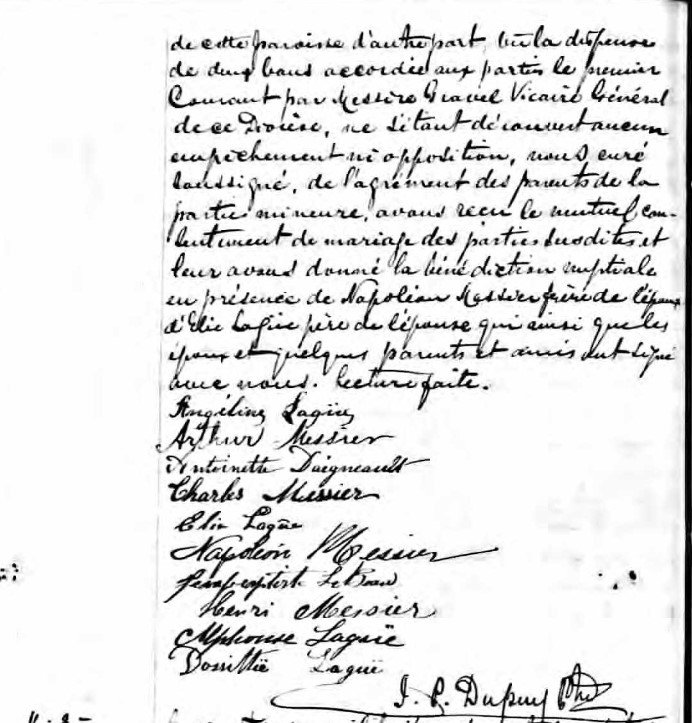 de cette paroisse d'autre part, vu la dispense
de deux bans accordée aux parties le premier
Courant par Messire Gravel Vicaire Général
de ce Diocèse, ne s'étant découvert aucun
empêchement ni opposition, nous, curé
soussigné, de l'agrément des parents de la
partie mineure, avons reçu le mutuel con-
sentement de mariage des parties susdites et
leur avons donné la bénédiction nuptiale
en présence de Napoléon Messier frère de l'époux
d'Elie Lagüe père de l'épouse qui ainsi que les
époux et quelques parents et amis ont signé
avec nous. Lecture faite.
Angélina Lagüe
Arthur Messier
Antoinette Daigneault
Charles Messier
Elie Lagüe
Napoléon Messier
Henri Messier
Alphonse Lagüe
Lagüe
J. P. Dupuy Ptre